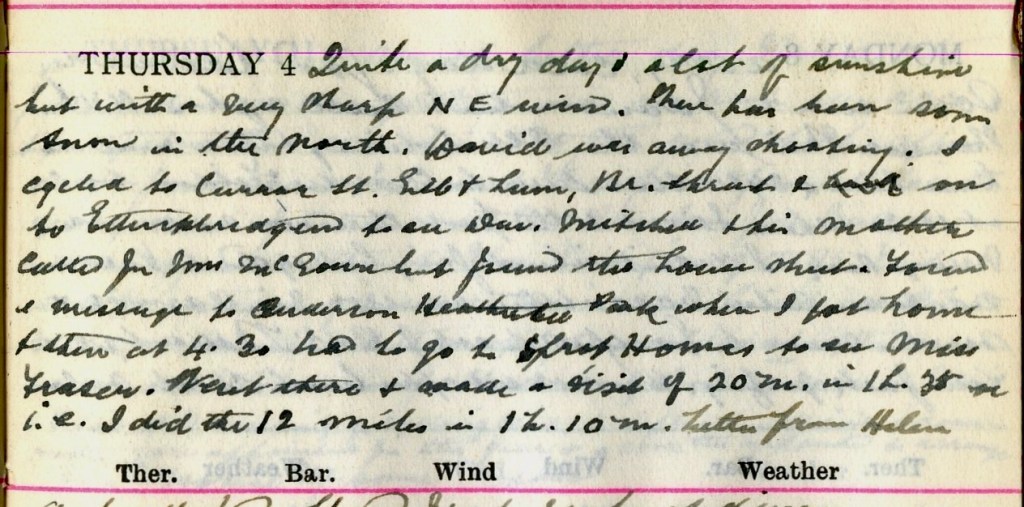 THURSDAY 4 Quite a dry day & a lot of sunshine
but with a very sharp N E wind. There has been some
snow in the North. David was away shooting. I
cycled to Currar St. Ell & Lum, Br. & on
to Ettrickbridgend to see Dav. Mitchell & his mother
Called for Mc Eown but found the house shut. Found
a message to Anderson Heatherlie Park when I got home
& then at 4.30 had to go to Homes to see Miss
Fraser. Went there & made a visit of 20 m. in 1 h. 35 m
i.e. I did the 12 miles in 1 h. 10 m. Letter from Helen
Ther. Bar. Wind Weather